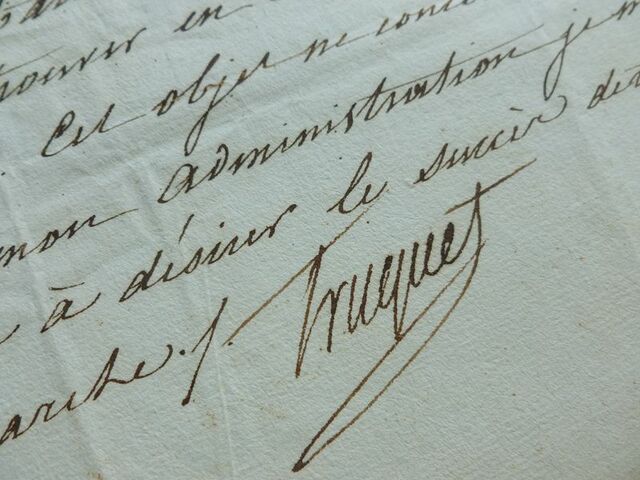 trouver en
Cet objet ne conc
mon administration je m
à désirer le succès de
arche.
Truguet